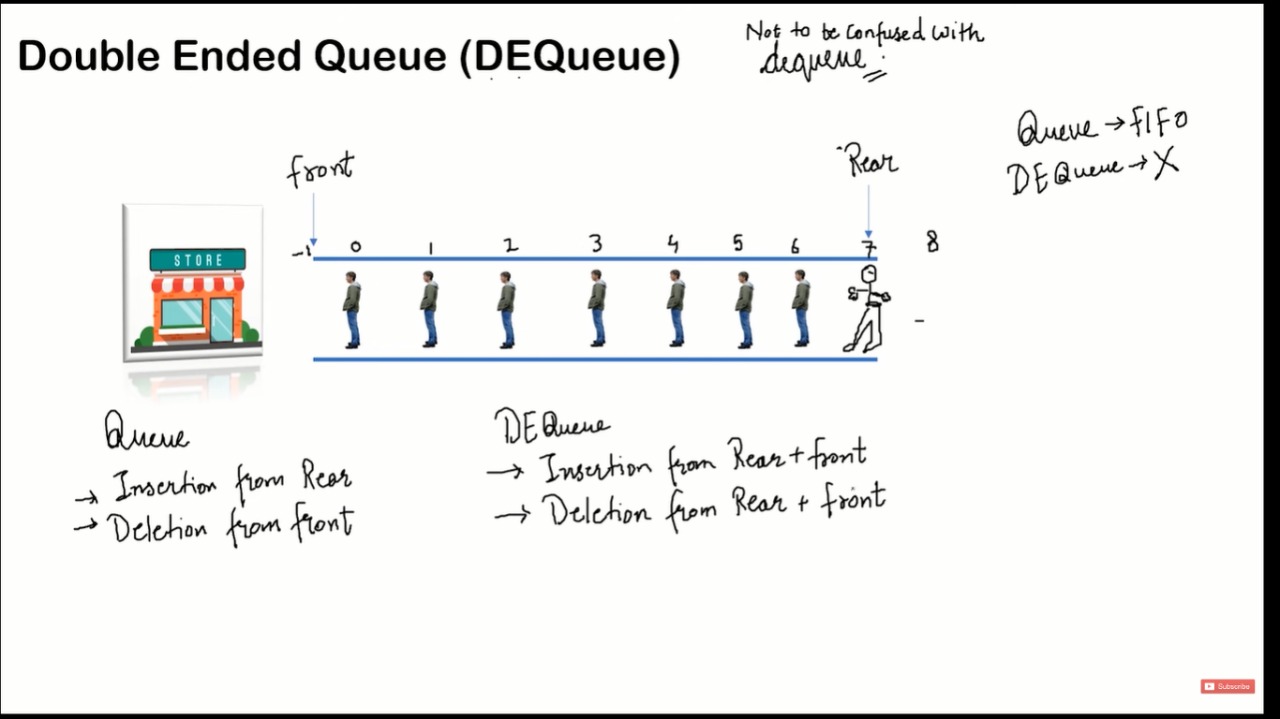 Not to be confused with
Double Ended Queue (DEQueue)
dequeue.
Queue → FIFO
DEQueue → X
front
Rear
-1 0 1 2 3 4 5 6 7 8
STORE
Queue
→ Insertion from Rear
→ Deletion from front
DEQueue
→ Insertion from Rear + front
→ Deletion from Rear + front
Subscribe